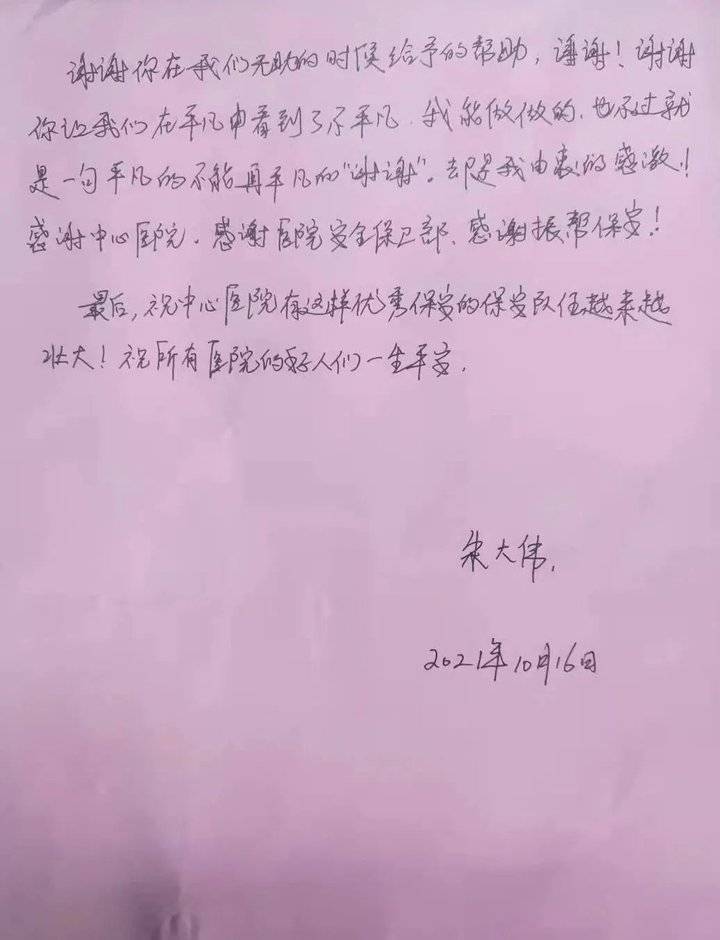 谢谢你在我们无助的时候给予的帮助，谢谢！谢谢
你让我们在平凡中看到了不平凡．我能做做的．也不过就
是一句平凡的不能再平凡的“谢谢”。却是我由衷的感激！
感谢中心医院．感谢医院安全保卫部．感谢振帮保安！
最后，祝中心医院有这样优秀保安的保安队伍越来越
壮大！祝所有医院的好人们一生平安．
朱大伟．
2021年10月16日